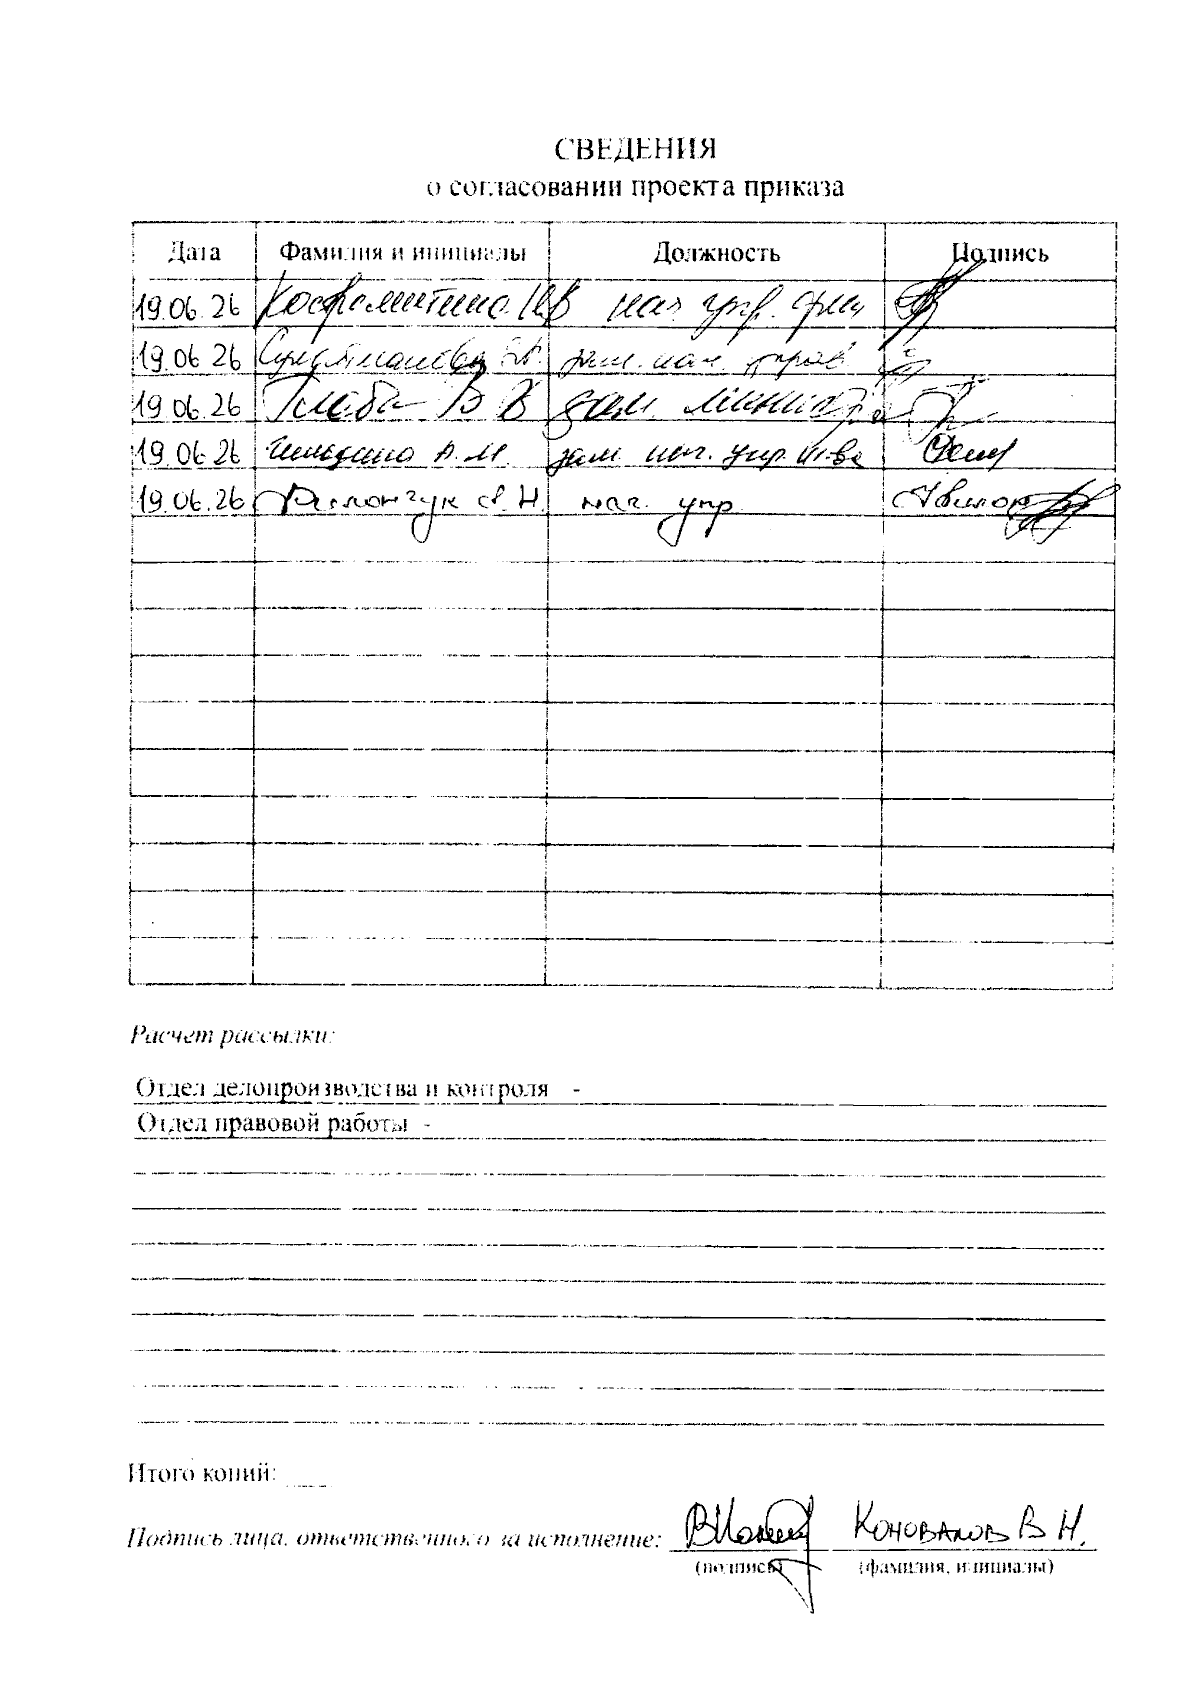 СВЕДЕНИЯ
о согласовании проекта приказа
Дата Фамилия и инициалы Должность Подпись
19.06.26 нач. упр.
19.06.26 зам. нач.
19.06.26 Глеба В В зам. министра
19.06.26 А.М. зам. нач. упр.
19.06.26 нач. упр.
Расчет рассылки:
Отдел делопроизводства и контроля -
Отдел правовой работы -
Итого копий:
Подпись лица, ответственного за исполнение: Коновалов В Н.
(подпись) (фамилия, инициалы)